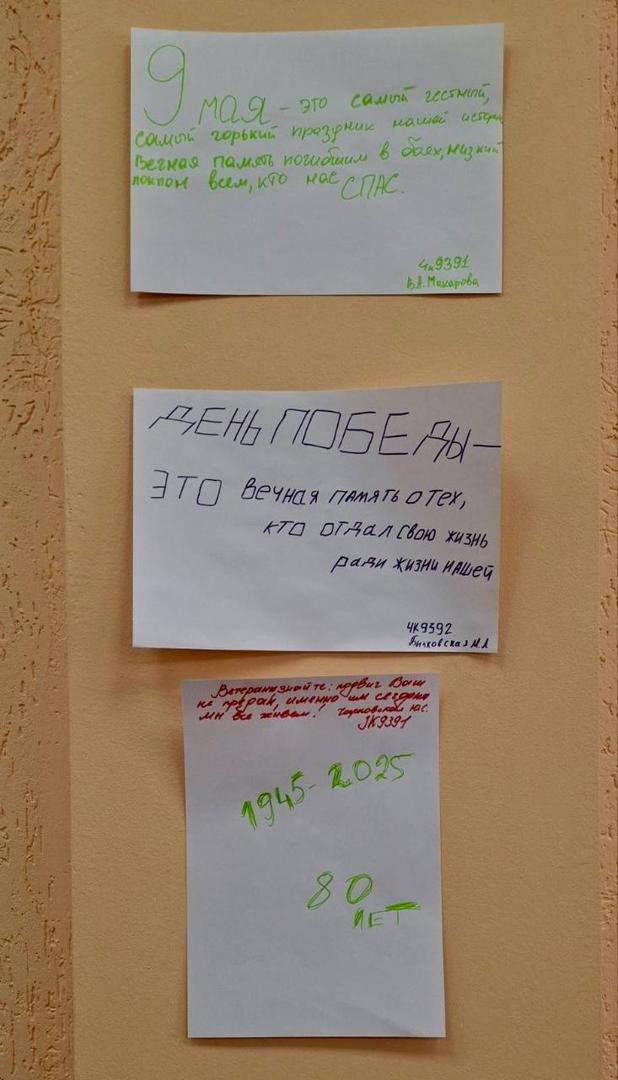 9 МАЯ – это самый честный,
самый горький праздник нашей истории
Вечная память погибшим в боях, низкий
поклон всем, кто нас СПАС.
4к9391
В.А. Макарова
ДЕНЬ ПОБЕДЫ —
ЭТО вечная память о тех,
кто отдал свою жизнь
ради жизни нашей
4К9392
М.А
Ветераны знайте: подвиг Ваш
не пропал, именно им сегодня
мы все живем!
9391
1945-2025
80
ЛЕТ